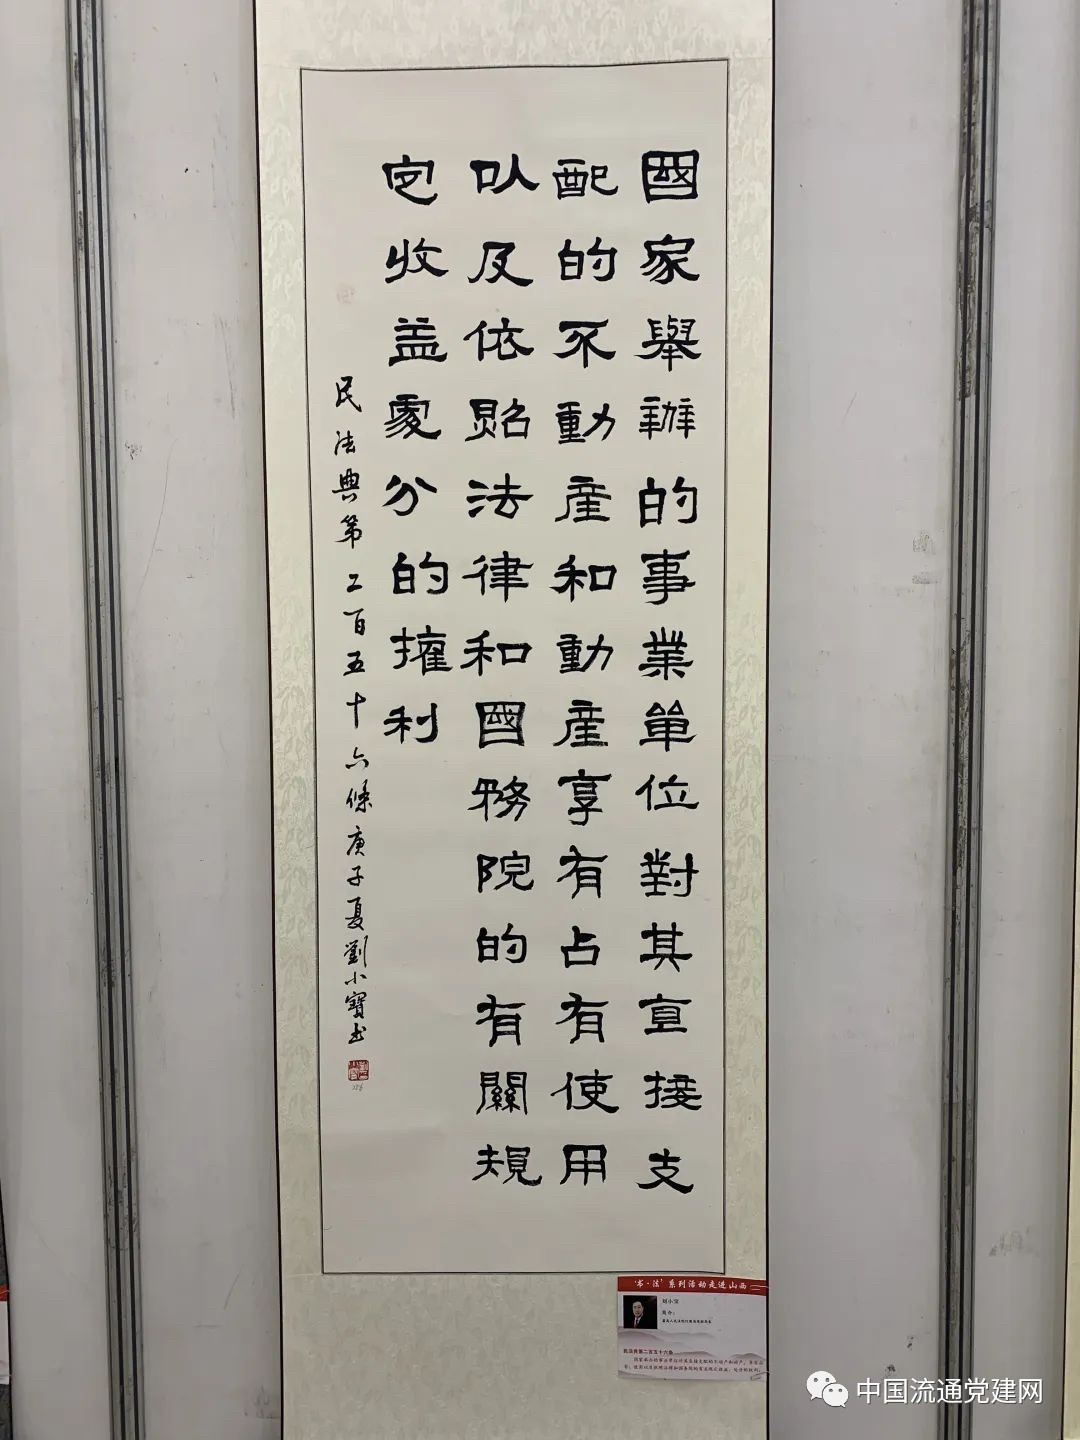 國家舉辦的事業單位對其直接支
配的不動產和動產享有占有使用
以及依照法律和國務院的有關規
定收益處分的權利
民法典第二百五十六條庚子夏劉小寶书
'书·法'系列活动走进山西
刘小宝
简介:
民法典第二百五十六条
中国流通党建网